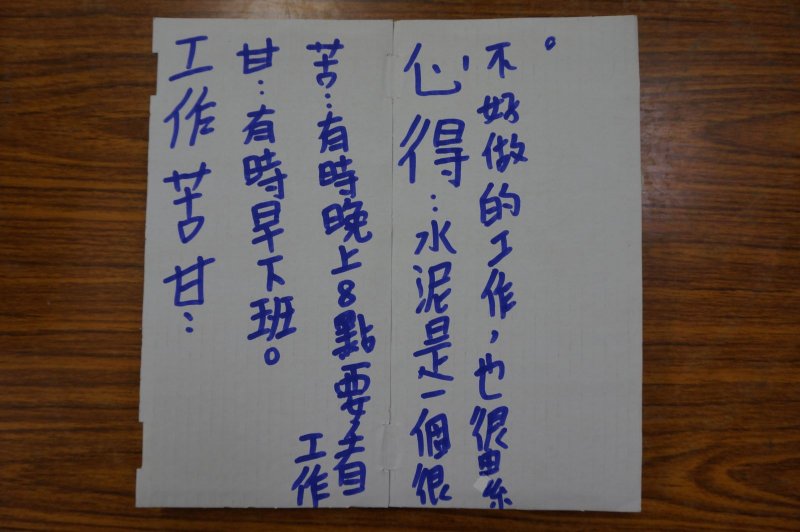 工作苦甘：
甘：有時早下班。
苦：有時晚上8點要看
工作
心得：水泥是一個很
不好做的工作，也很累
。